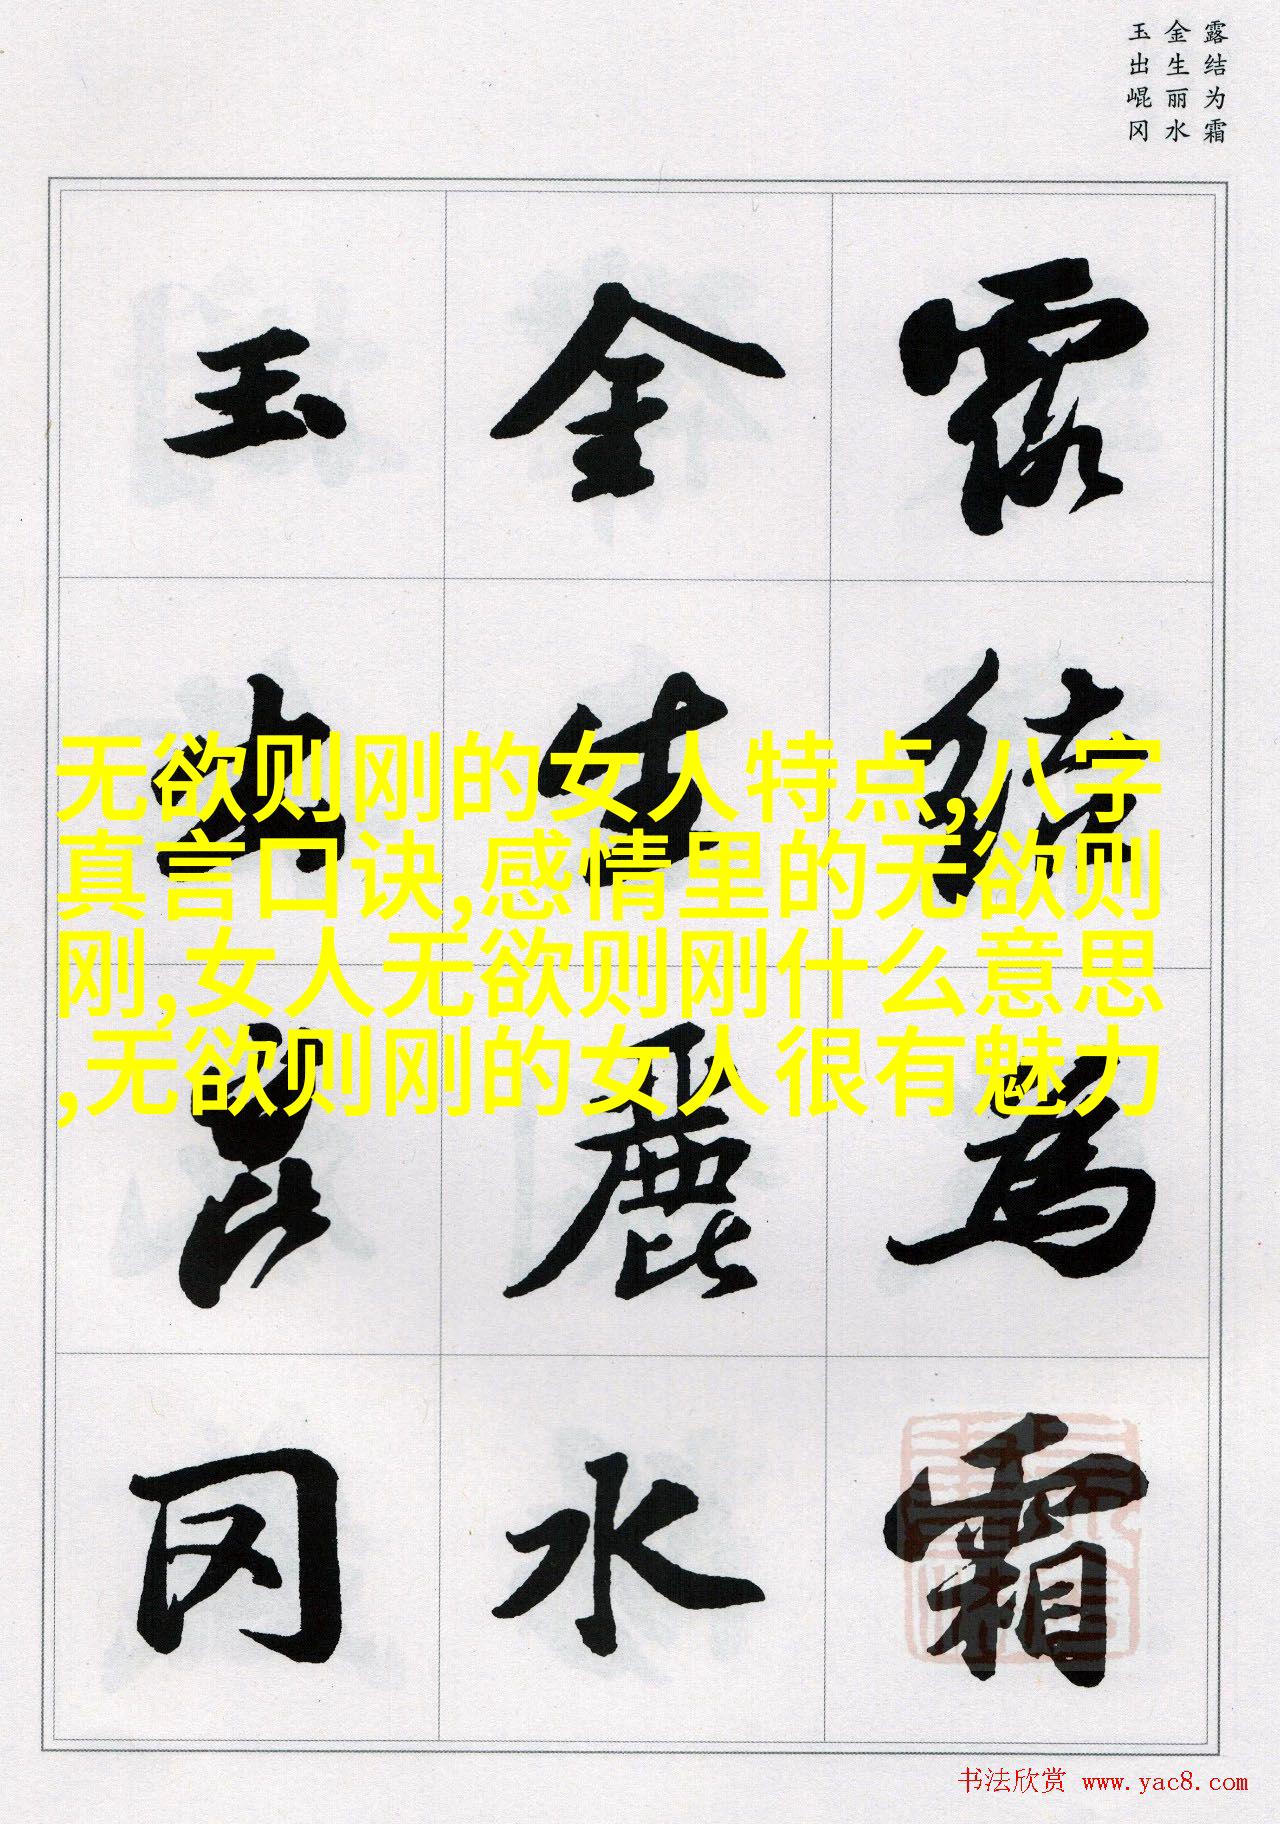 露结为霜
金生丽水
玉出崐冈
露結為霜
金生麗水
玉出崑冈
无欲则刚的女人特点,八字
真言口诀,感情里的无欲则
刚,女人无欲则刚什么意思
,无欲则刚的女人很有魅力
书法欣赏 www.yac8.com